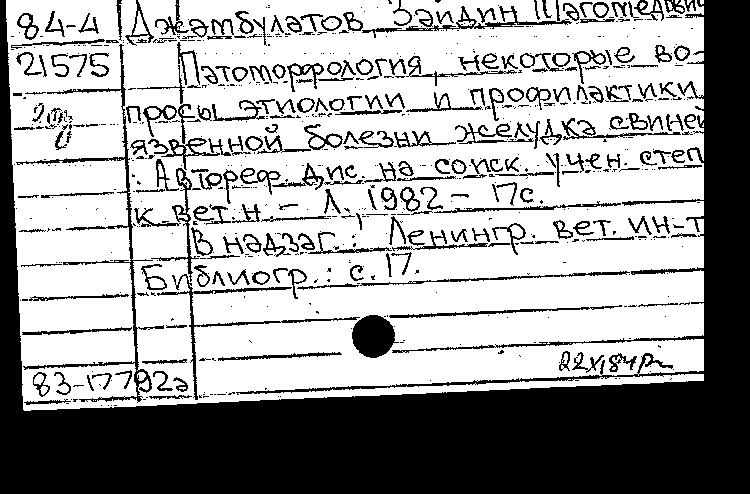 84-4 Джамбулатов, Зайдин Магомедович
21575 Патоморфология, некоторые во-
просы этиологии и профилактики
язвенной болезни желудка свиней
: Автореф. дис. на соиск. учен. степ
к. вет. н. - Л., 1982 - 17с.
В надзаг.: Ленингр. вет. ин-т
Библиогр.: с. 17.
83-17792а